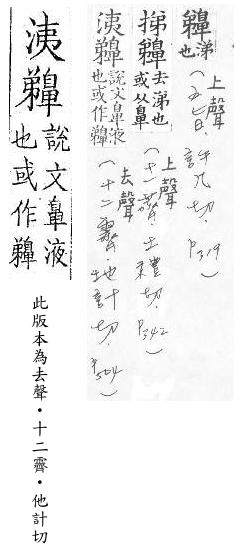 涕也
上聲
(五旨．許几切．P319)
挮
去涕也
或从鼻
上聲
(十一薺．土禮切．P342)
洟
說文鼻液
也或作
去聲
(十二霽．他計切．P504)
洟
說文鼻液
也或作
此版本為去聲．十二霽．他計切